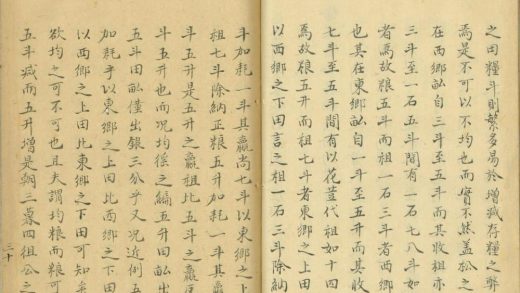 之田糧斗則繁多易於增減存糧之弊
焉是不可以不均也而實不然蓋松之
在西鄉畝自三斗至五斗而其收租亦
三斗至一石五斗間有一石七八斗如
者焉故粮五斗而租一石三斗者西鄉
也其在東鄉畝自一斗至五升而其收
七斗至五斗間有以花荳代租如十四
焉故粮五升而租七斗者東鄉之上田
以西鄉之下田言之租一石三斗除納
斗加耗一斗其贏尚七斗以東鄉之上
租七斗除納正粮五升加耗一斗其贏
斗五升是五升之贏租比五斗之贏
斗五升也而況均徭之編五升田畝出
五斗田畝僅出銀三分乎又況近例五
加耗乎以東鄉之上田比西鄉之下田
以西鄉之上田比東鄉之下田可知矣
欲均之可不可也且夫謂均粮而粮可
五斗減而五升增是朝三暮四狙公之
二十